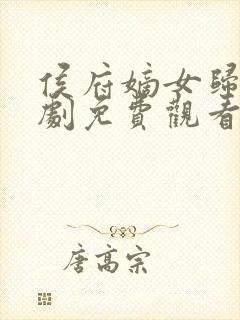 侯府嫡女歸
劇免費觀看
唐高宗